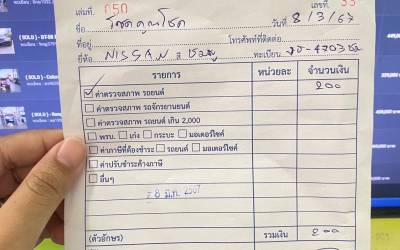 เล่มที่ 050 เลขที่ 33
ชื่อ โชคคูณโชค วันที่ 8/3/67
ที่อยู่ โทรศัพท์ที่ติดต่อ
ยี่ห้อ NISSAN สี ทะเบียน
รายการ หน่วยละ จำนวนเงิน
ค่าตรวจสภาพ รถยนต์ 200
ค่าตรวจสภาพ รถจักรยานยนต์
ค่าตรวจสภาพ รถยนต์ เกิน 2,000
พรบ. เก๋ง กระบะ มอเตอร์ไซค์
ค่าภาษีที่ต้องชำระ รถยนต์ มอเตอร์ไซค์
ค่าปรับชำระค้างภาษี
อื่นๆ
8 มี.ค. 2567
(ตัวอักษร) รวมเงิน 200